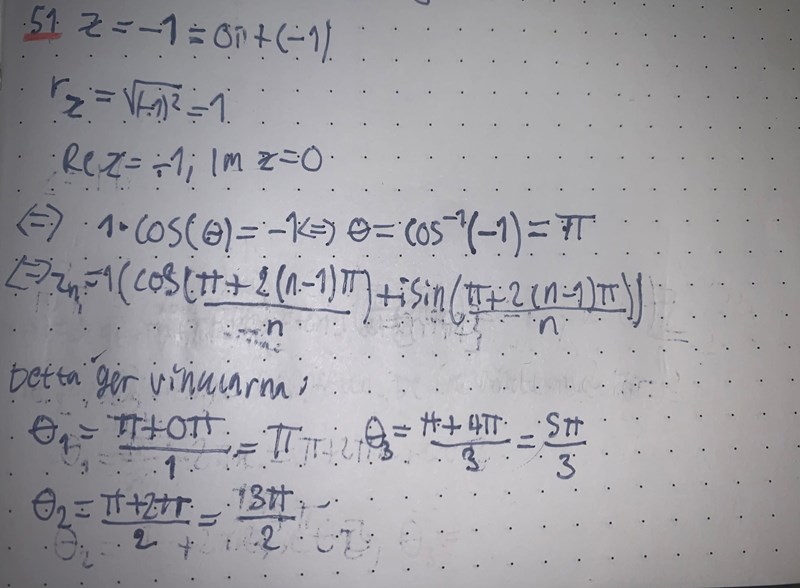 51 z = -1 = 0i + (-1)
r_z = √(-1)² = 1
Re z = -1, Im z = 0
⇔ 1 · cos(θ) = -1 ⇔ θ = cos⁻¹(-1) = π
⇔ z_n = 1(cos((π + 2(n-1)π)/n) + i sin((π + 2(n-1)π)/n))
Detta ger vinklarna:
θ₁ = (π + 0π)/1 = π θ₃ = (π + 4π)/3 = 5π/3
θ₂ = (π + 2π)/2 = 3π/2